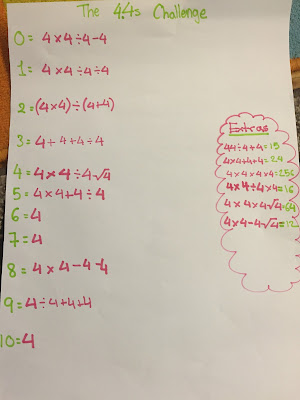 The 4.4s Challenge
0= 4×4÷4-4
1= 4×4÷4÷4
2=(4×4)÷(4+4)
3= 4+4+4÷4
4= 4×4÷4√4
5= 4×4+4÷4
6=4
7=4
8= 4×4-4-4
9= 4÷4+4+4
10=4
Extras
44÷4+4=15
4×4+4+4=24
4×4×4×4=256
4×4÷4×4=16
4×4×4√4=64
4×4-4√4=12